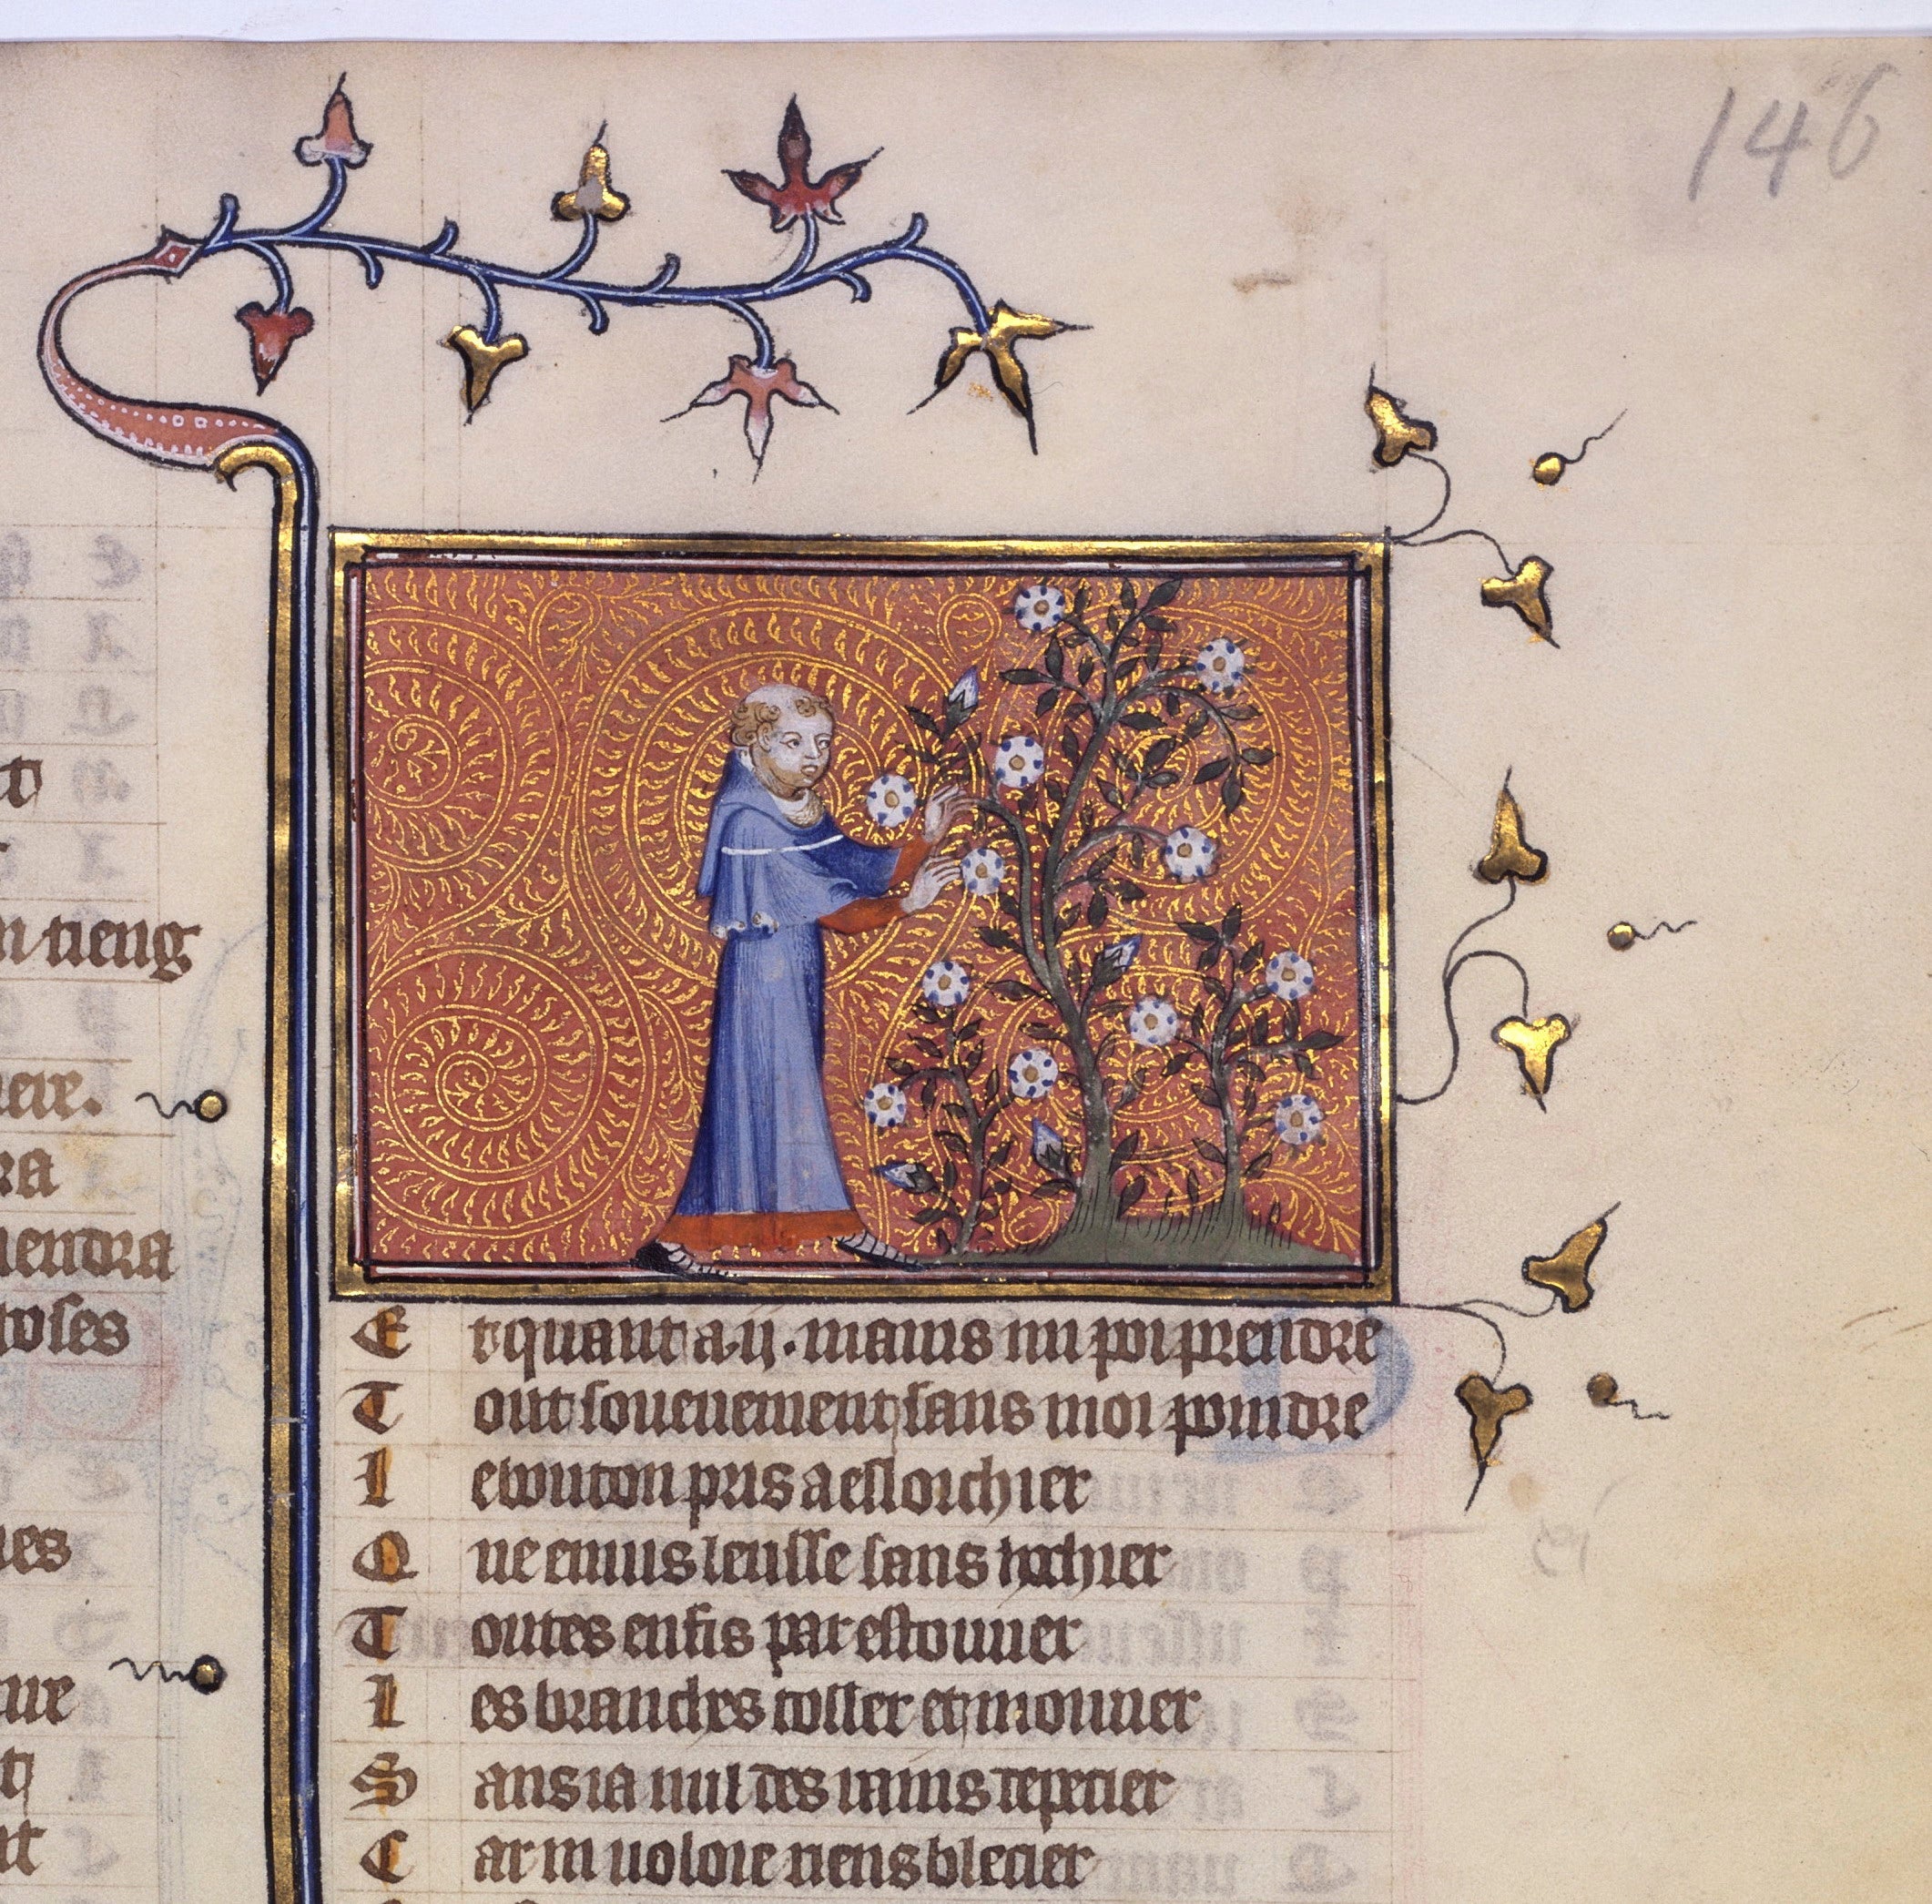 146
t
n tieng
ere.
ra
iendra
toses
ues
ure
nt
Et quant a .ij. mains ni poi prendre
Tout souevement sans moi poindre
Le bouton pris a esloichier
Que envis leusse sans hochier
Toutes en fis par estouvoir
Les branches croller et mouvoir
Sans ia nul des rains depecier
Car ni voloie riens blecier